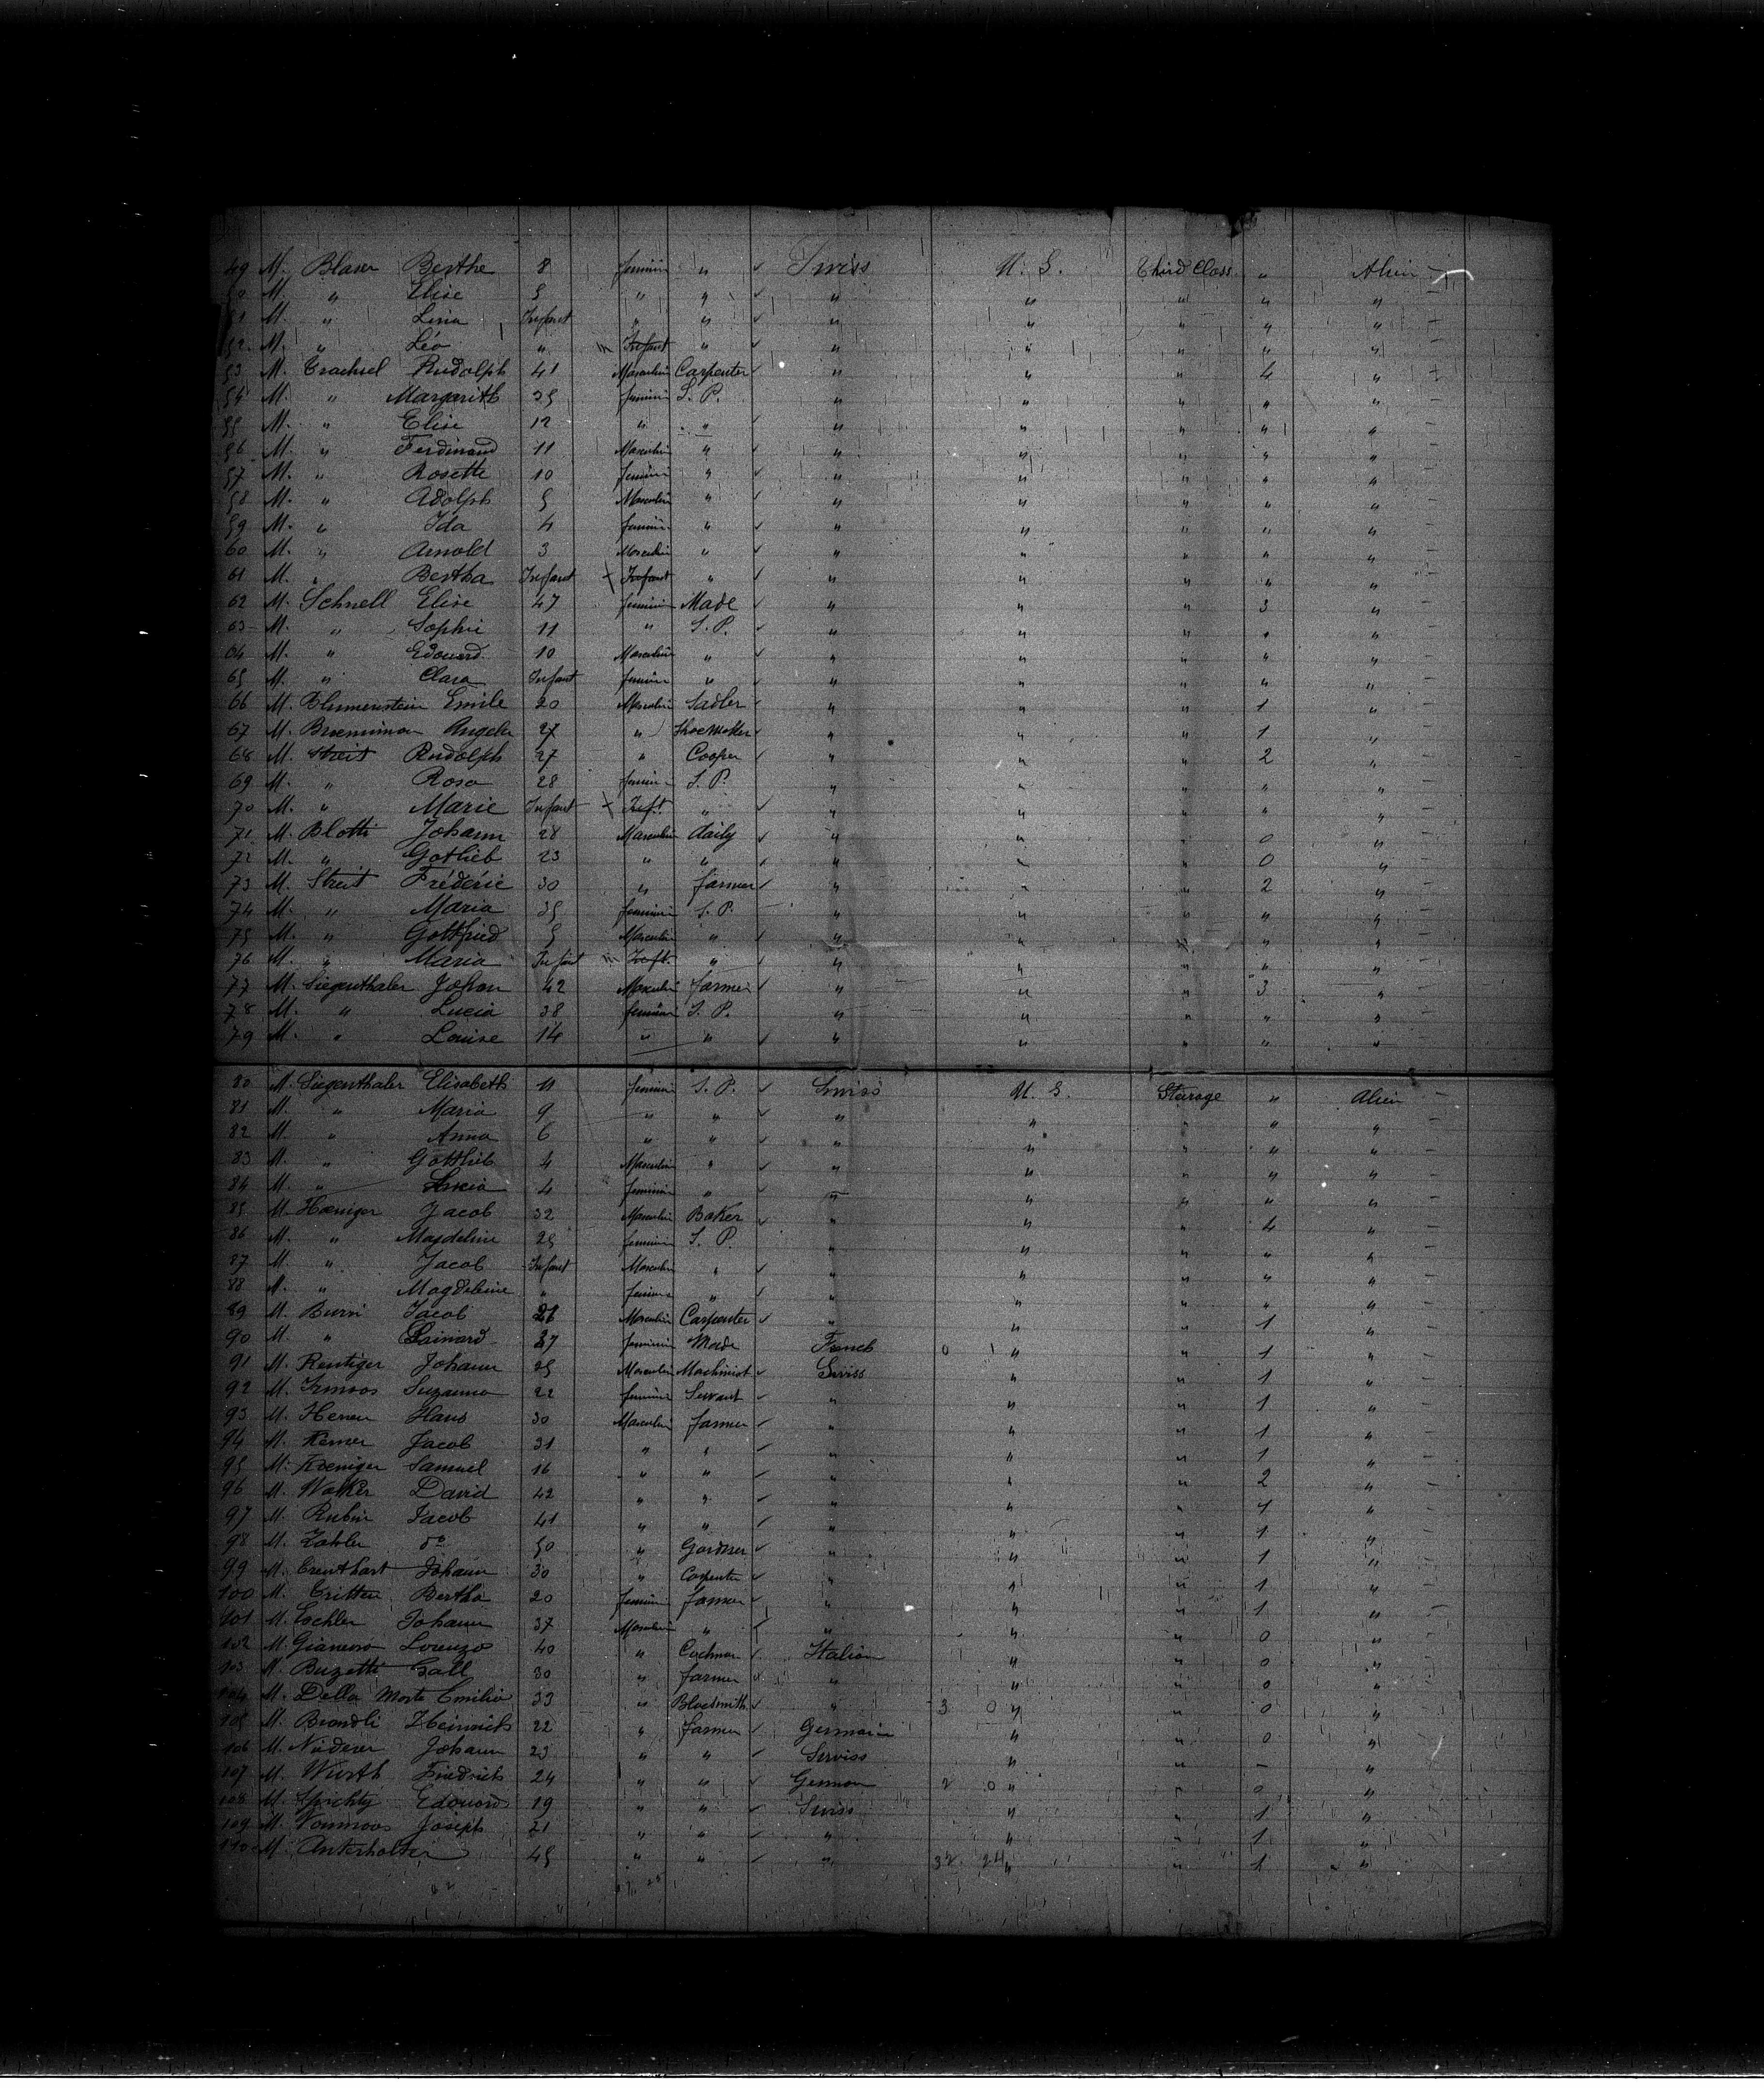 49 M. Blaser Berthe 8 feminin " Swiss U. S. Third Class " Alien
50 M. " Elise 5 " " " " " " "
51 M. " Lina Infant " " " " " " "
52 M. " Léo " Infant " " " " " "
53 M. Trachsel Rudolph 41 Masculin Carpenter " " " 4 "
54 M. " Margarith 35 feminin S. P. " " " " "
55 M. " Elise 12 " " " " " " "
56 M. " Ferdinand 11 Masculin " " " " " "
57 M. " Rosette 10 feminin " " " " " "
58 M. " Adolph 5 Masculin " " " " " "
59 M. " Ida 4 feminin " " " " " "
60 M. " Arnold 3 Masculin " " " " " "
61 M. " Bertha Infant Infant " " " " " "
62 M. Schnell Elise 47 feminin Made " " " 3 "
63 M. " Sophie 11 " S. P. " " " " "
64 M. " Edouard 10 Masculin " " " " " "
65 M. " Clara Infant feminin " " " " " "
66 M. Blumenstein Emile 20 Masculin Sadler " " " 1 "
67 M. Angele 27 " Shoemaker " " " 1 "
68 M. Streit Rudolph 27 " Cooper " " " 2 "
69 M. " Rosa 28 feminin S. P. " " " " "
70 M. " Marie Infant Inft. " " " " " "
71 M. Blotti Johann 28 Masculin daily " " " 0 "
72 M. " Gotlieb 23 " " " " " 0 "
73 M. Streit Fréderic 30 " farmer " " " 2 "
74 M. " Maria 35 feminin S. P. " " " " "
75 M. " Gottfried 5 Masculin " " " " " "
76 M. " Maria Infant Inft. " " " " " "
77 M. Siegenthaler Johan 42 Masculin farmer " " " 3 "
78 M. " Lucia 38 feminin S. P. " " " " "
79 M. " Louise 14 " " " " " " "
80 M. Siegenthaler Elisabeth 11 feminin S. P. Swiss U. S. Stearage " Alien
81 M. " Maria 9 " " " " " " "
82 M. " Anna 6 " " " " " " "
83 M. " Gottlieb 4 Masculin " " " " " "
84 M. " Lucia 4 feminin " " " " " "
85 M. Hæniger Jacob 32 Masculin Baker " " " 4 "
86 M. " Magdeline 25 feminin S. P. " " " " "
87 M. " Jacob Infant Masculin " " " " " "
88 M. " Magdeleine " feminin " " " " " "
89 M. Burri Jacob 21 Masculin Carpenter " " " 1 "
90 M. " 27 feminin Made French 0 1 " " 1 "
91 M. Rentiger Johann 25 Masculin Machinist Swiss " " 1 "
92 M. Suzanna 22 feminin Servant " " " 1 "
93 M. Hans 30 Masculin farmer " " " 1 "
94 M. Jacob 31 " " " " " 1 "
95 M. Samuel 16 " " " " " 2 "
96 M. Walker David 42 " " " " " 1 "
97 M. Rubin Jacob 41 " " " " " 1 "
98 M. Zahler do 50 " Gardner " " " 1 "
99 M. Johann 30 " Carpenter " " " 1 "
100 M. Critten Bertha 20 feminin farmer " " " 1 "
101 M. Johann 37 Masculin " " " " 0 "
102 M. Lorenzo 40 " Cochman Italian " " 0 "
103 M. Buzetti Gall 30 " farmer " " " 0 "
104 M. Della Morte Emilio 33 " Blacksmith " 3 0 " " 0 "
105 M. Brandli Heinrich 22 " farmer German " " 0 "
106 M. Niederer Johann 23 " " Swiss " " - "
107 M. Wirth Friedrich 24 " " German 2 0 " " 0 "
108 M. Spichty Edouard 19 " " Swiss " " 1 "
109 M. Vonmoos Joseph 21 " " " " " 1 "
110 M. Anterhalter 45 " " " 32 24 " " 1 "